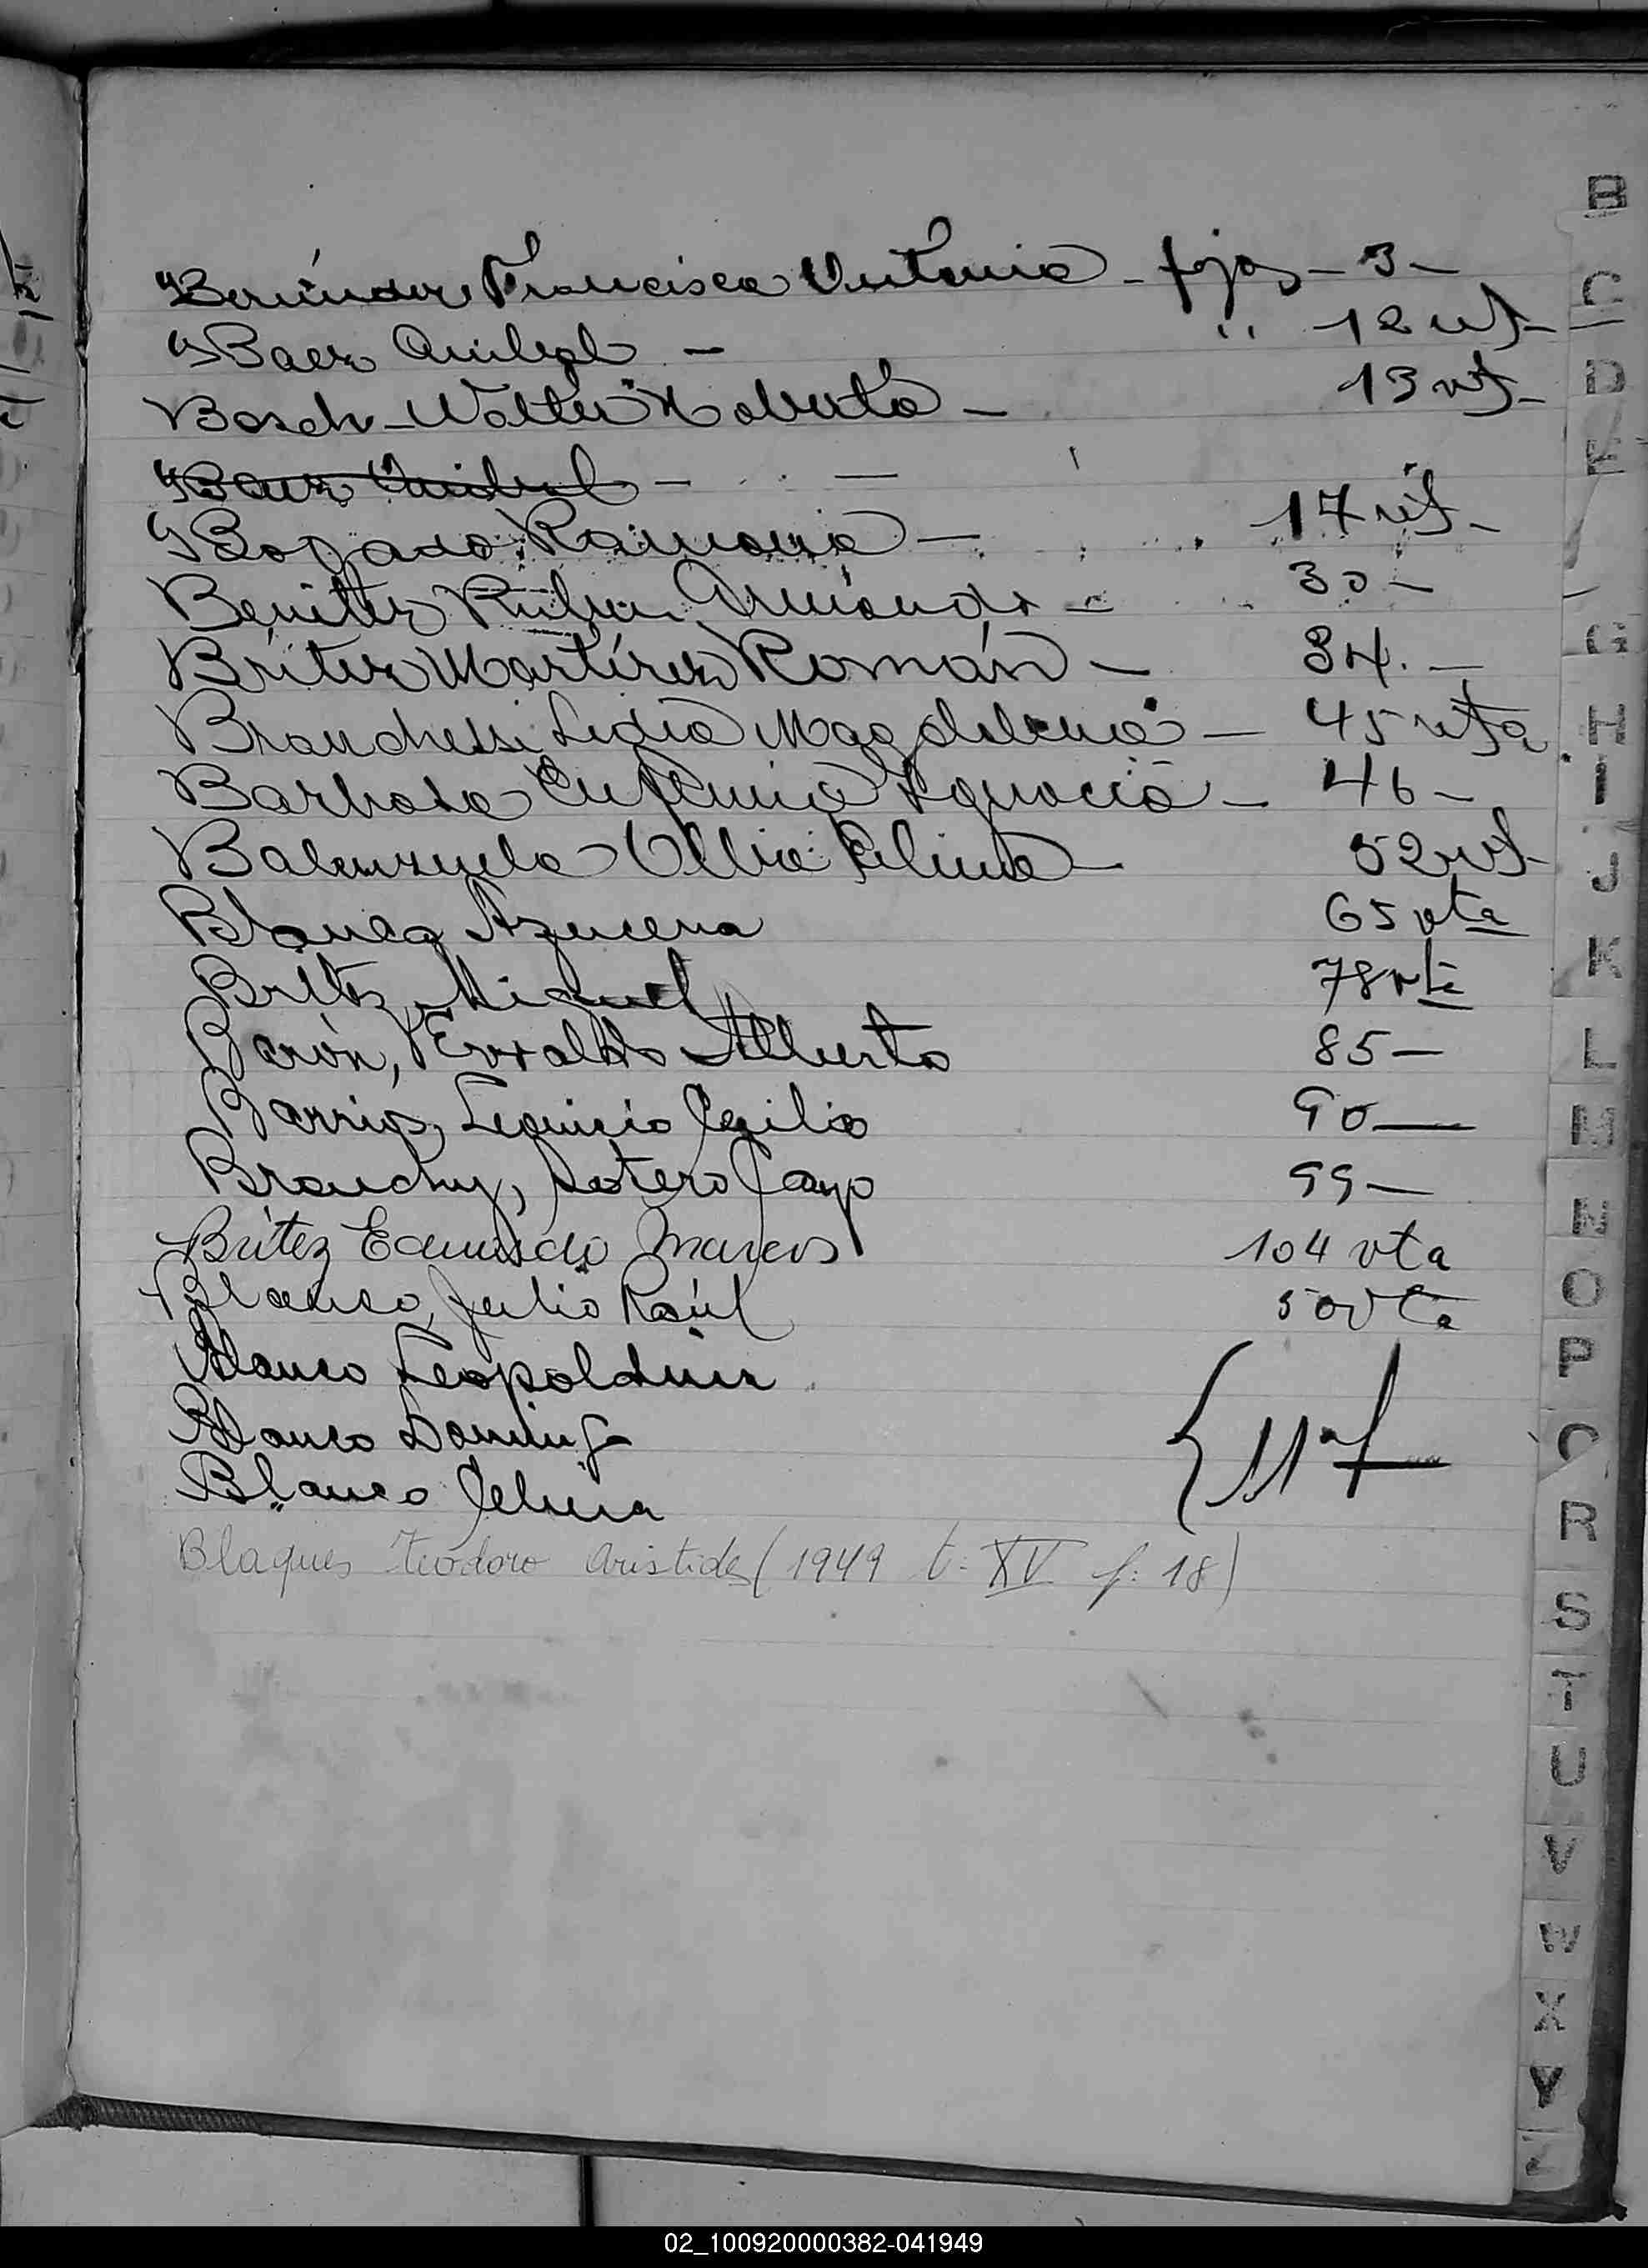 Francisca Antonia - fojas - 3 -
Baez Anibal - " 12 vt -
Bosch - Walter Roberto - 13 vt -
Baez Anibal -
Bogado Ramona - 17 vt -
Benitez Ruben Armando - 30 -
Britez Martirez Román - 34. -
Branchessi Lidia Magdalena - 45 vta
Barbosa Eufemia Ignacia - 46 -
Balenzuela Celina - 52 vt -
Blanca Azucena 65 vta
Britez, Miguel 78 vta
Barón, Alberto 85 -
Barrios, Cecilio 90 -
Sotero Cayo 99 -
Britez Edmundo Marcos 104 vta
Blanco, Julio Raúl 50 vta
Blanco Leopoldina
Blanco Dominga { 117
Blanco Celina
Blaques Teodoro Aristides (1949 t: XV f: 18)
B
C
D
E
G
H
I
J
K
L
M
N
O
P
R
S
T
U
V
W
X
Y
02_100920000382-041949